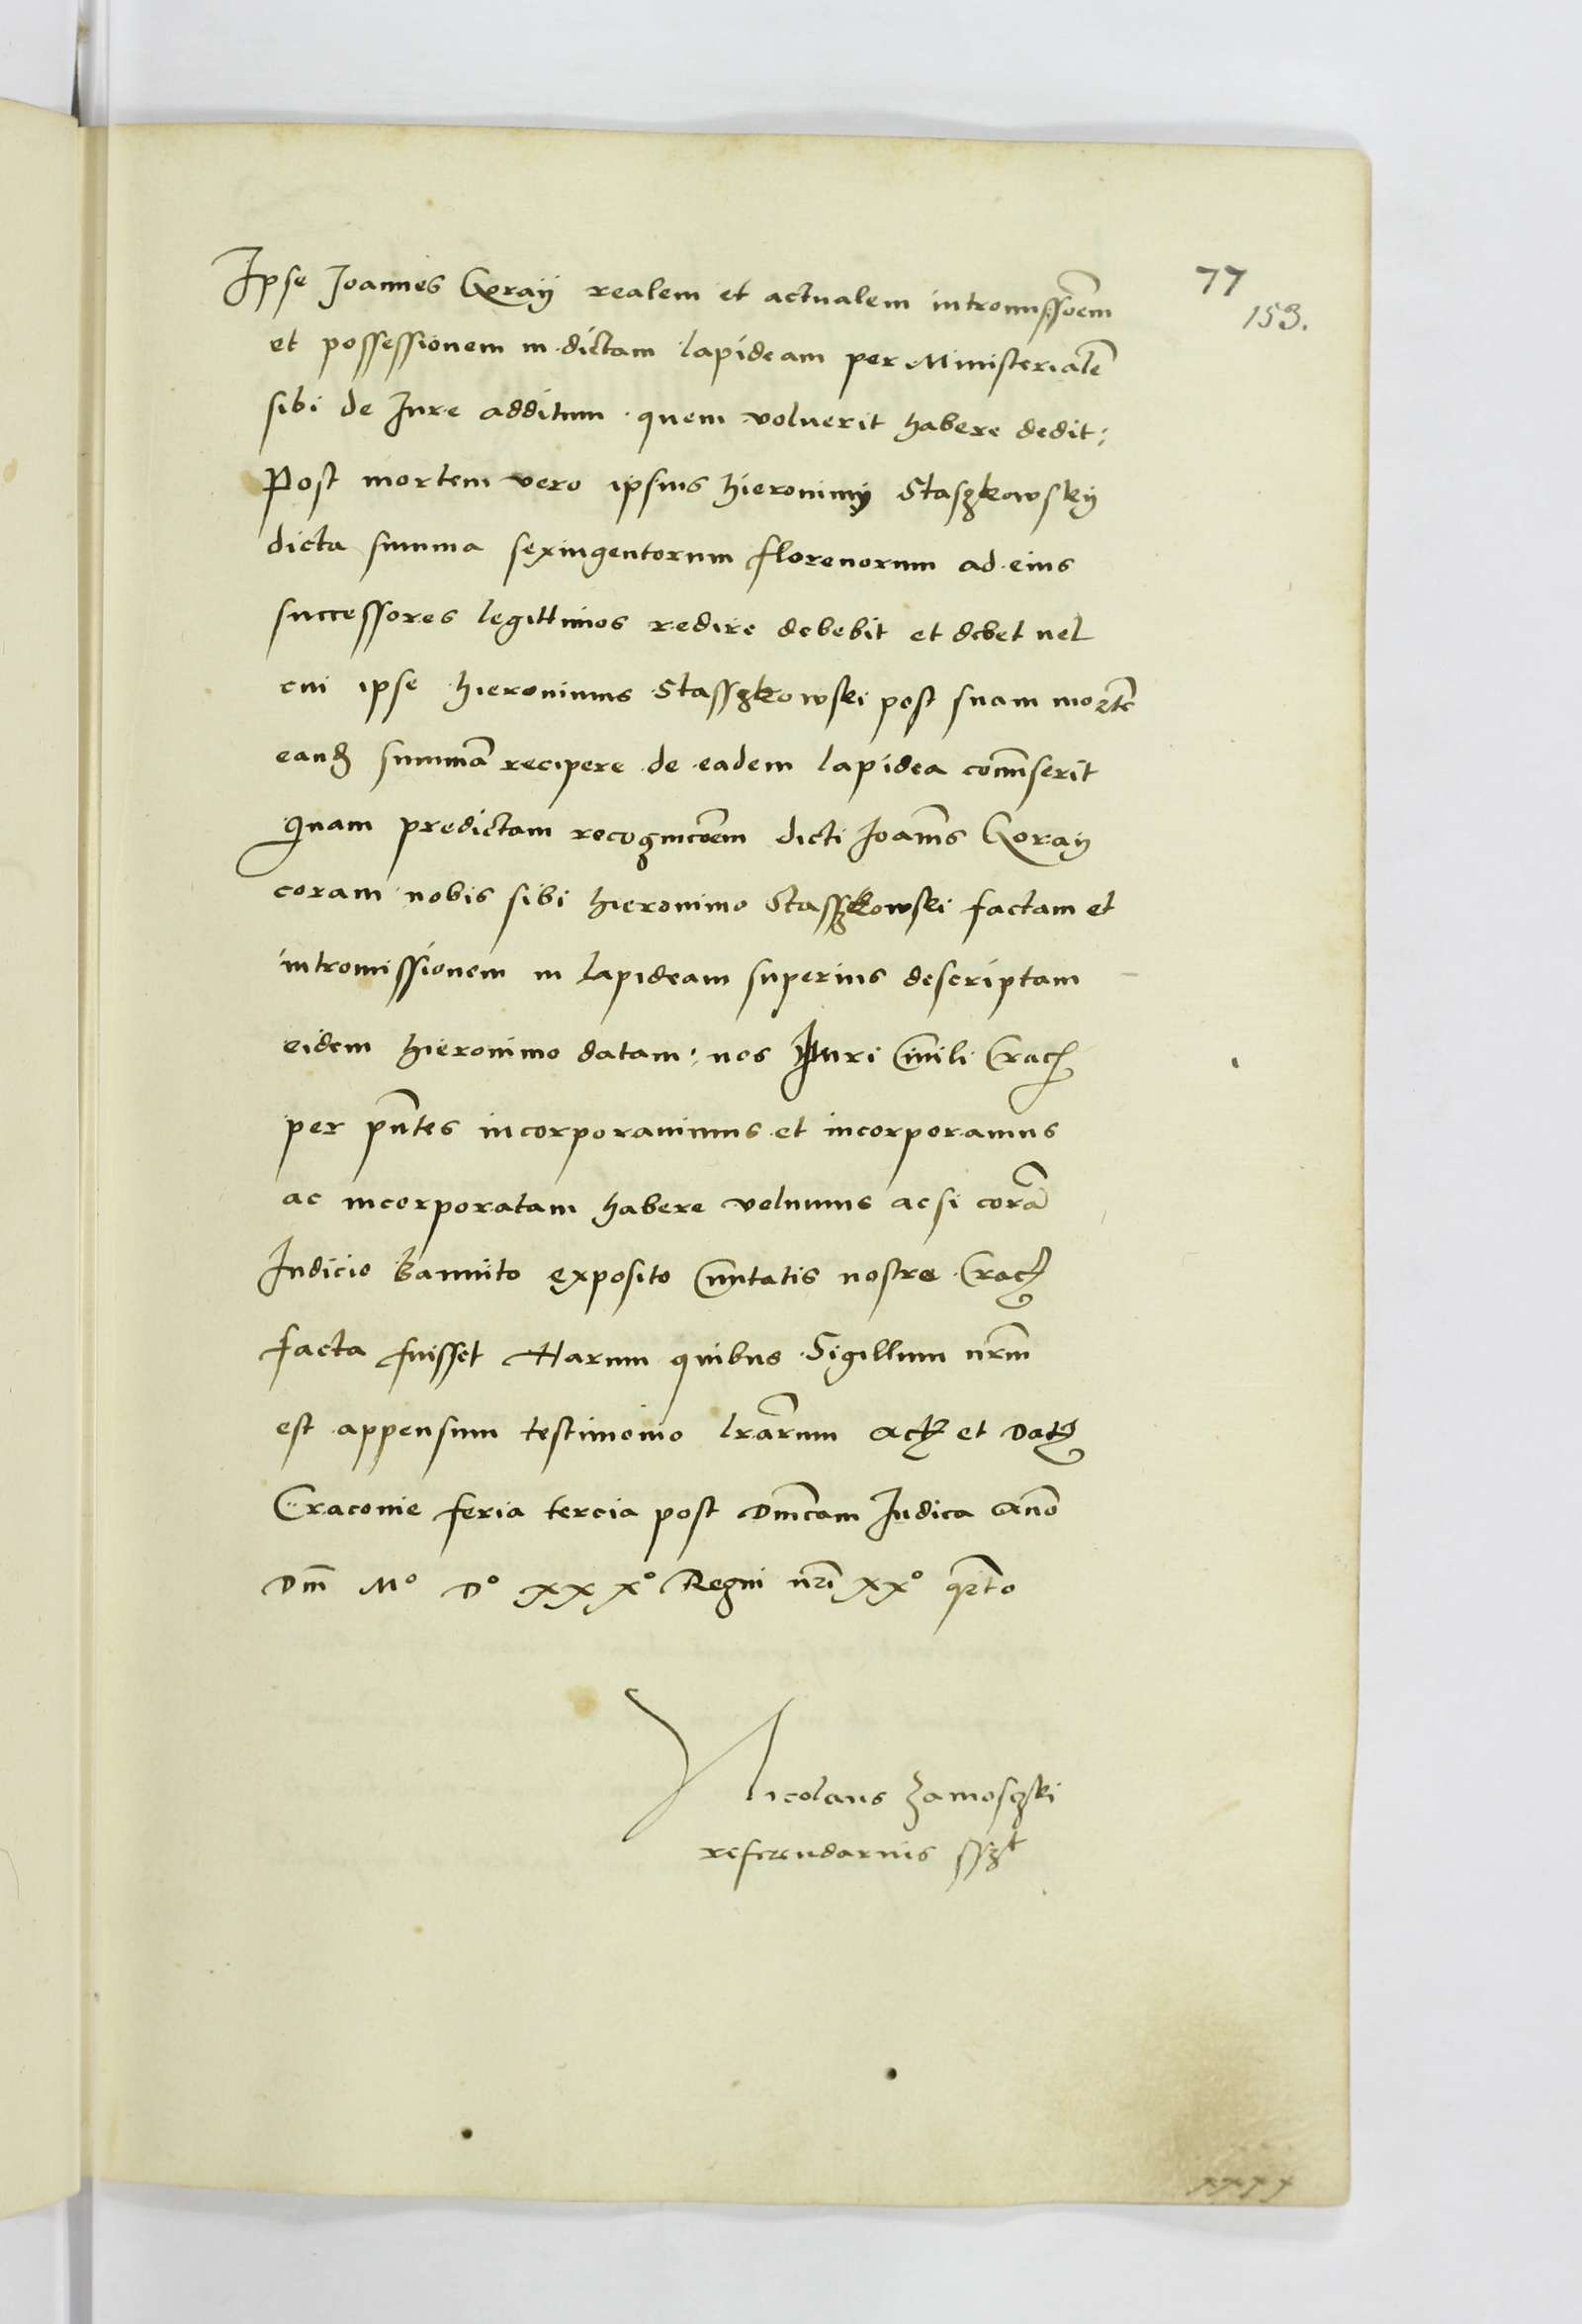 77
153.
Ipse Joannes Goraÿ realem et actualem intromissõem
et possessionem in dictam lapideam per Ministerialẽ
sibi de Jure additum quem voluerit habere dedit:
Post mortem vero ipsius Hieronimÿ Staszkowskÿ
dicta summa sexingentorum florenorum ad eius
successores legittimos redire debebit et debet vel
cui ipse Hieronimus Stasszkowski post suam mortẽ
eandẽ summã recipere de eadem lapidea com̃iserit
Quam predictam recognicõem dicti Joan̄is Goraÿ
coram nobis sibi Hieronimo Stasszkowski factam et
intromissionem in lapideam superius descriptam
eidem Hieronimo datam: nos Juri Ciuili Crac̃
per pñtes incorporauimus et incorporamus
ac incorporatam habere volumus ac si corã
Judicio bannito exposito Ciuitatis nostre Crac̃
facta fuisset Harum quibus Sigillum nr̃m
est appensum testimonio lr̃arum Act̃ et Dat̃
Cracouie feria tercia post Dnīcam Judica Anō
Dnī Mº Dº xxxº Regni nrī xxº qr̃to
Nicolaus Zamoszki
referendarius sszt